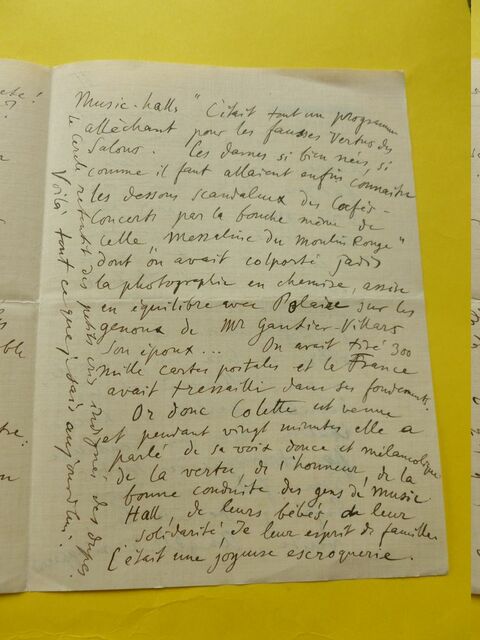 Music-halls" C'était tout un programme
alléchant pour les fausses Vertus des
Salons. Les dames si bien nées, si
comme il faut allaient enfin connaître
les dessous scandaleux des Cafés-
Concerts par la bouche même de
celle "Messaline du Moulin Rouge"
dont on avait colporté jadis
la photographie en chemise, assise
en équilibre avec Polaire sur les
genoux de Mr Gautier-Villars
Son époux... On avait tiré 300
mille cartes postales et la France
avait tressailli dans ses fondements.
Or donc Colette est venue
et pendant vingt minutes elle a
parlé de sa voix douce et mélancolique
de la vertu, de l'honneur, de la
bonne conduite des gens de Music
Hall, de leurs bébés de leur
solidarité de leur esprit de famille
C'était une joyeuse escroquerie.
Le Cercle retentit des petits cris indignés des dupes.
Voilà tout ce que je sais aujourd'hui.